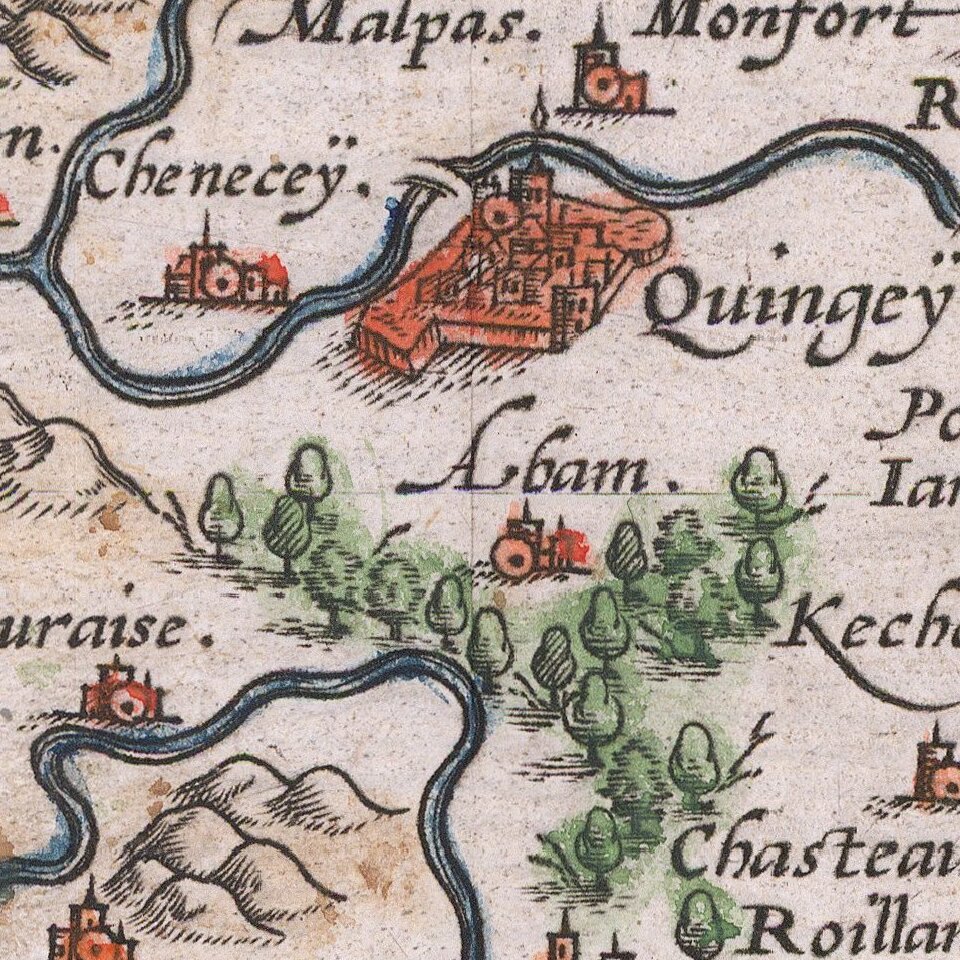 Malpas.
Monfort
R
n.
Cheneceÿ.
Quingeÿ
Abam.
Po
Ian
uraise.
Kech
Chasteau
Roillan